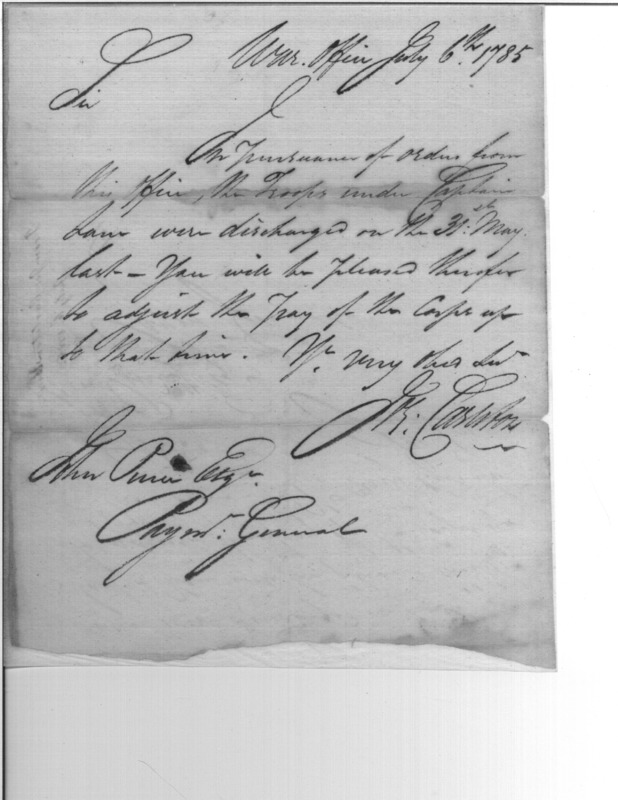 War Office July 6th. 1785
Sir
In Pursuance of orders from
this Office, the Troops under Captain
were discharged on the 31st. May
last – You will be pleased therefor
to adjust the Pay of the Corps up
to that time. Yr. very Obed Svt
Jos: Carleton
John Pierce Esqr.
Paymr. General